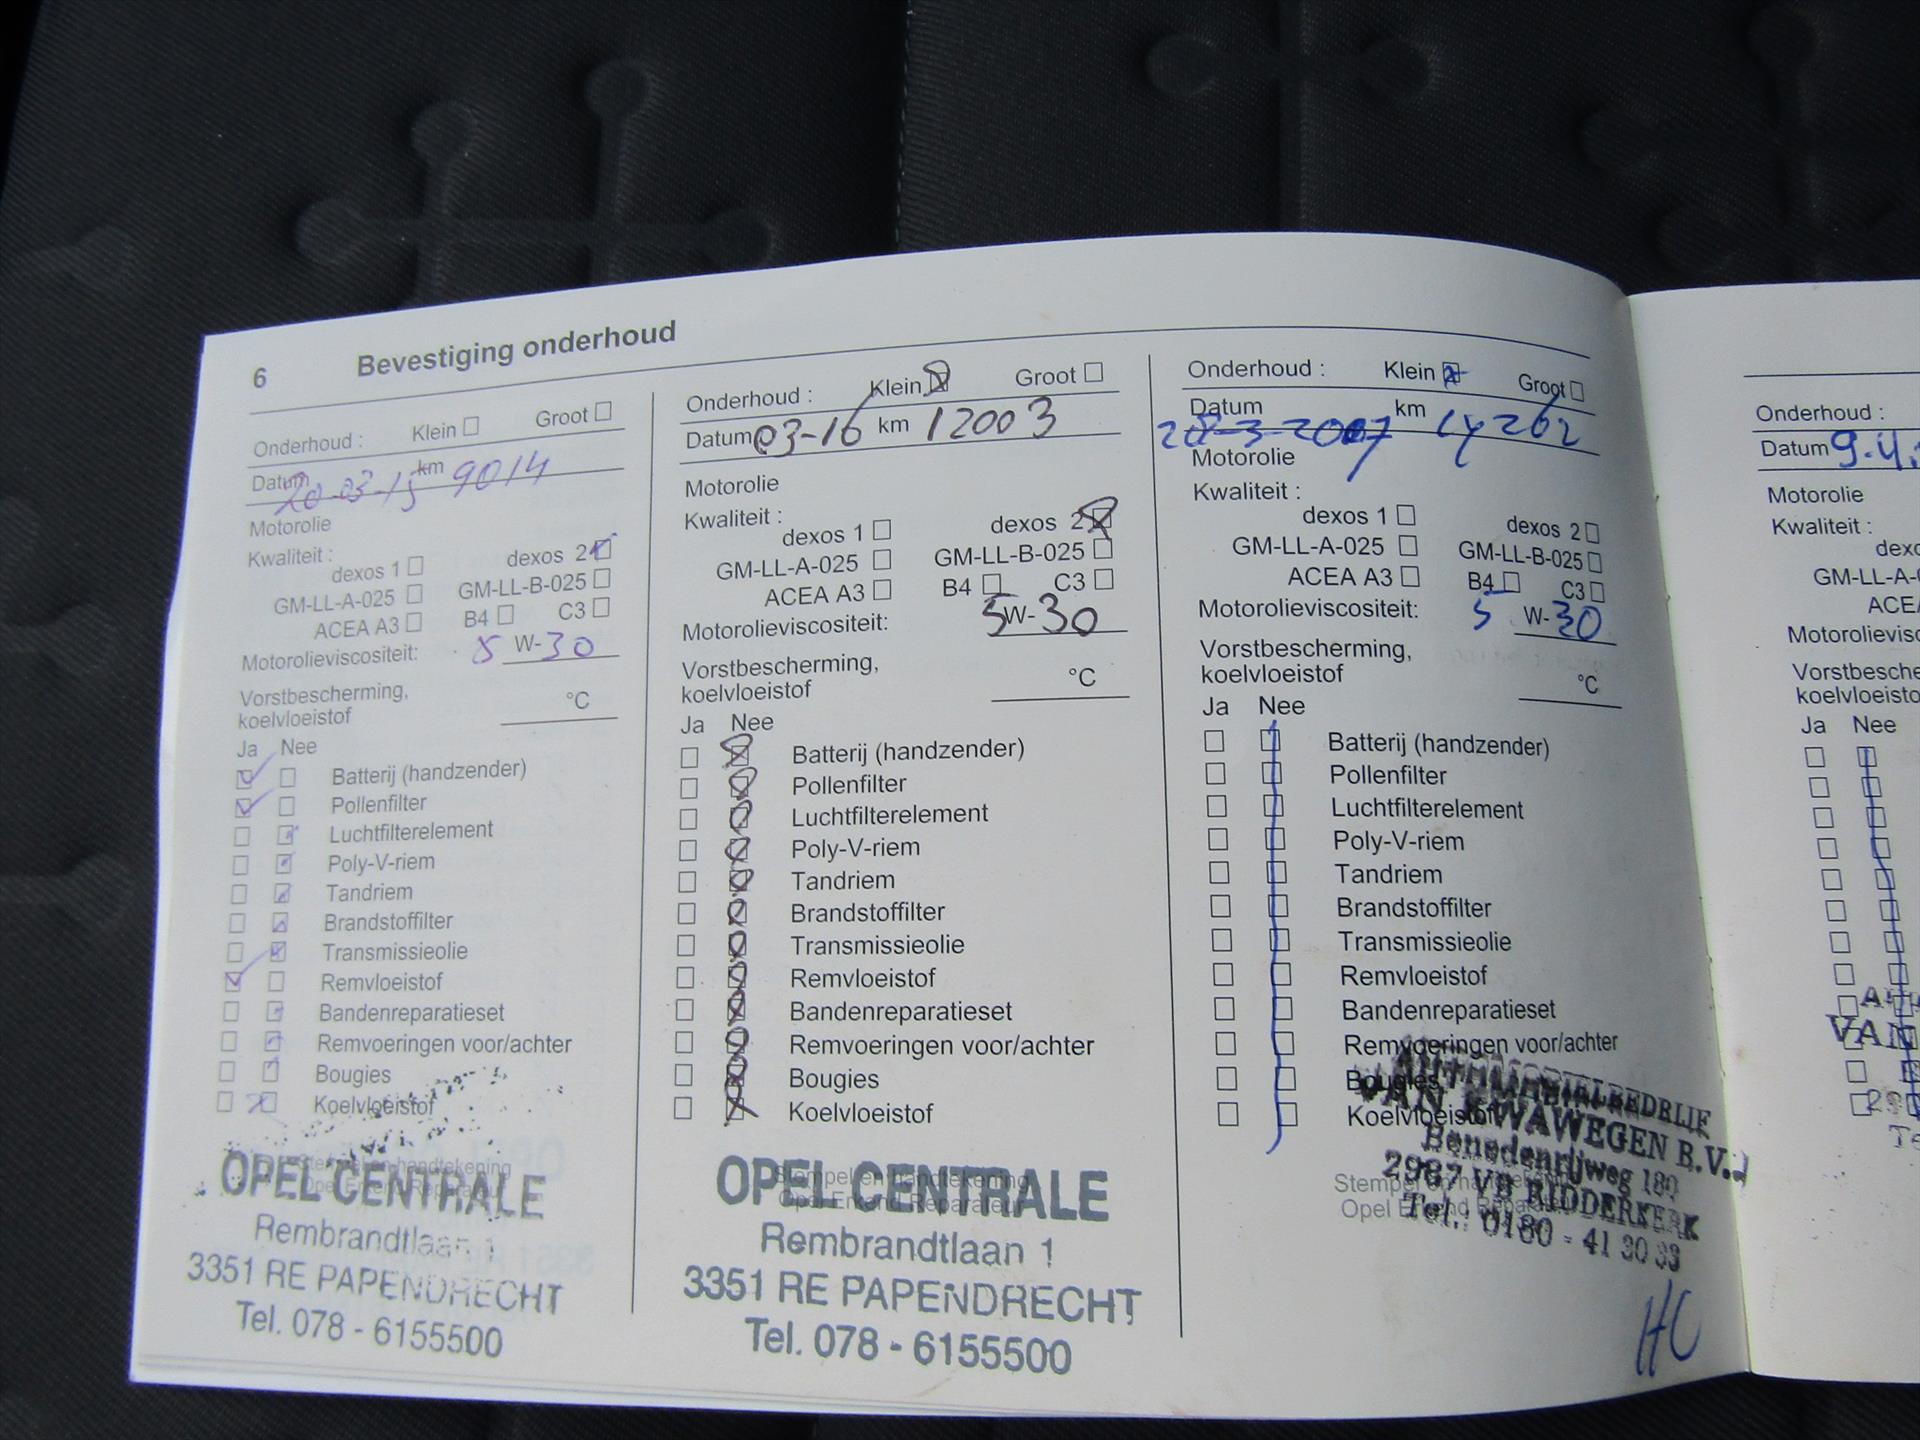 6 Bevestiging onderhoud
Onderhoud : Klein Groot
Datum 20-03-15 km 9014
Motorolie
Kwaliteit :
dexos 1 dexos 2
GM-LL-A-025 GM-LL-B-025
ACEA A3 B4 C3
Motorolieviscositeit: 5 W-30
Vorstbescherming,
koelvloeistof °C
Ja Nee
Batterij (handzender)
Pollenfilter
Luchtfilterelement
Poly-V-riem
Tandriem
Brandstoffilter
Transmissieolie
Remvloeistof
Bandenreparatieset
Remvoeringen voor/achter
Bougies
Koelvloeistof
Stempel en handtekening
Opel Erkend Reparateur
OPEL CENTRALE
Rembrandtlaan 1
3351 RE PAPENDRECHT
Tel. 078 - 6155500
Onderhoud : Klein Groot
Datum 03-16 km 12003
Motorolie
Kwaliteit :
dexos 1 dexos 2
GM-LL-A-025 GM-LL-B-025
ACEA A3 B4 C3
Motorolieviscositeit: 5W-30
Vorstbescherming,
koelvloeistof °C
Ja Nee
Batterij (handzender)
Pollenfilter
Luchtfilterelement
Poly-V-riem
Tandriem
Brandstoffilter
Transmissieolie
Remvloeistof
Bandenreparatieset
Remvoeringen voor/achter
Bougies
Koelvloeistof
Stempel en handtekening
Opel Erkend Reparateur
OPEL CENTRALE
Rembrandtlaan 1
3351 RE PAPENDRECHT
Tel. 078 - 6155500
Onderhoud : Klein Groot
Datum km
Motorolie
Kwaliteit :
dexos 1 dexos 2
GM-LL-A-025 GM-LL-B-025
ACEA A3 B4 C3
Motorolieviscositeit: 5 W-30
Vorstbescherming,
koelvloeistof °C
Ja Nee
Batterij (handzender)
Pollenfilter
Luchtfilterelement
Poly-V-riem
Tandriem
Brandstoffilter
Transmissieolie
Remvloeistof
Bandenreparatieset
Remvoeringen voor/achter
Bougies
Koelvloeistof
Stempel en handtekening
Opel Erkend
VAN KWAWEGEN B.V.
Benedenrijweg 180
2987 VB RIDDERKERK
Tel.: 0180 - 41 30 33
HC
Onderhoud :
Datum 9.4.
Motorolie
Kwaliteit :
dexo
GM-LL-A-0
ACEA
Motorolievisco
Vorstbescherm
koelvloeistof
Ja Nee
VAN